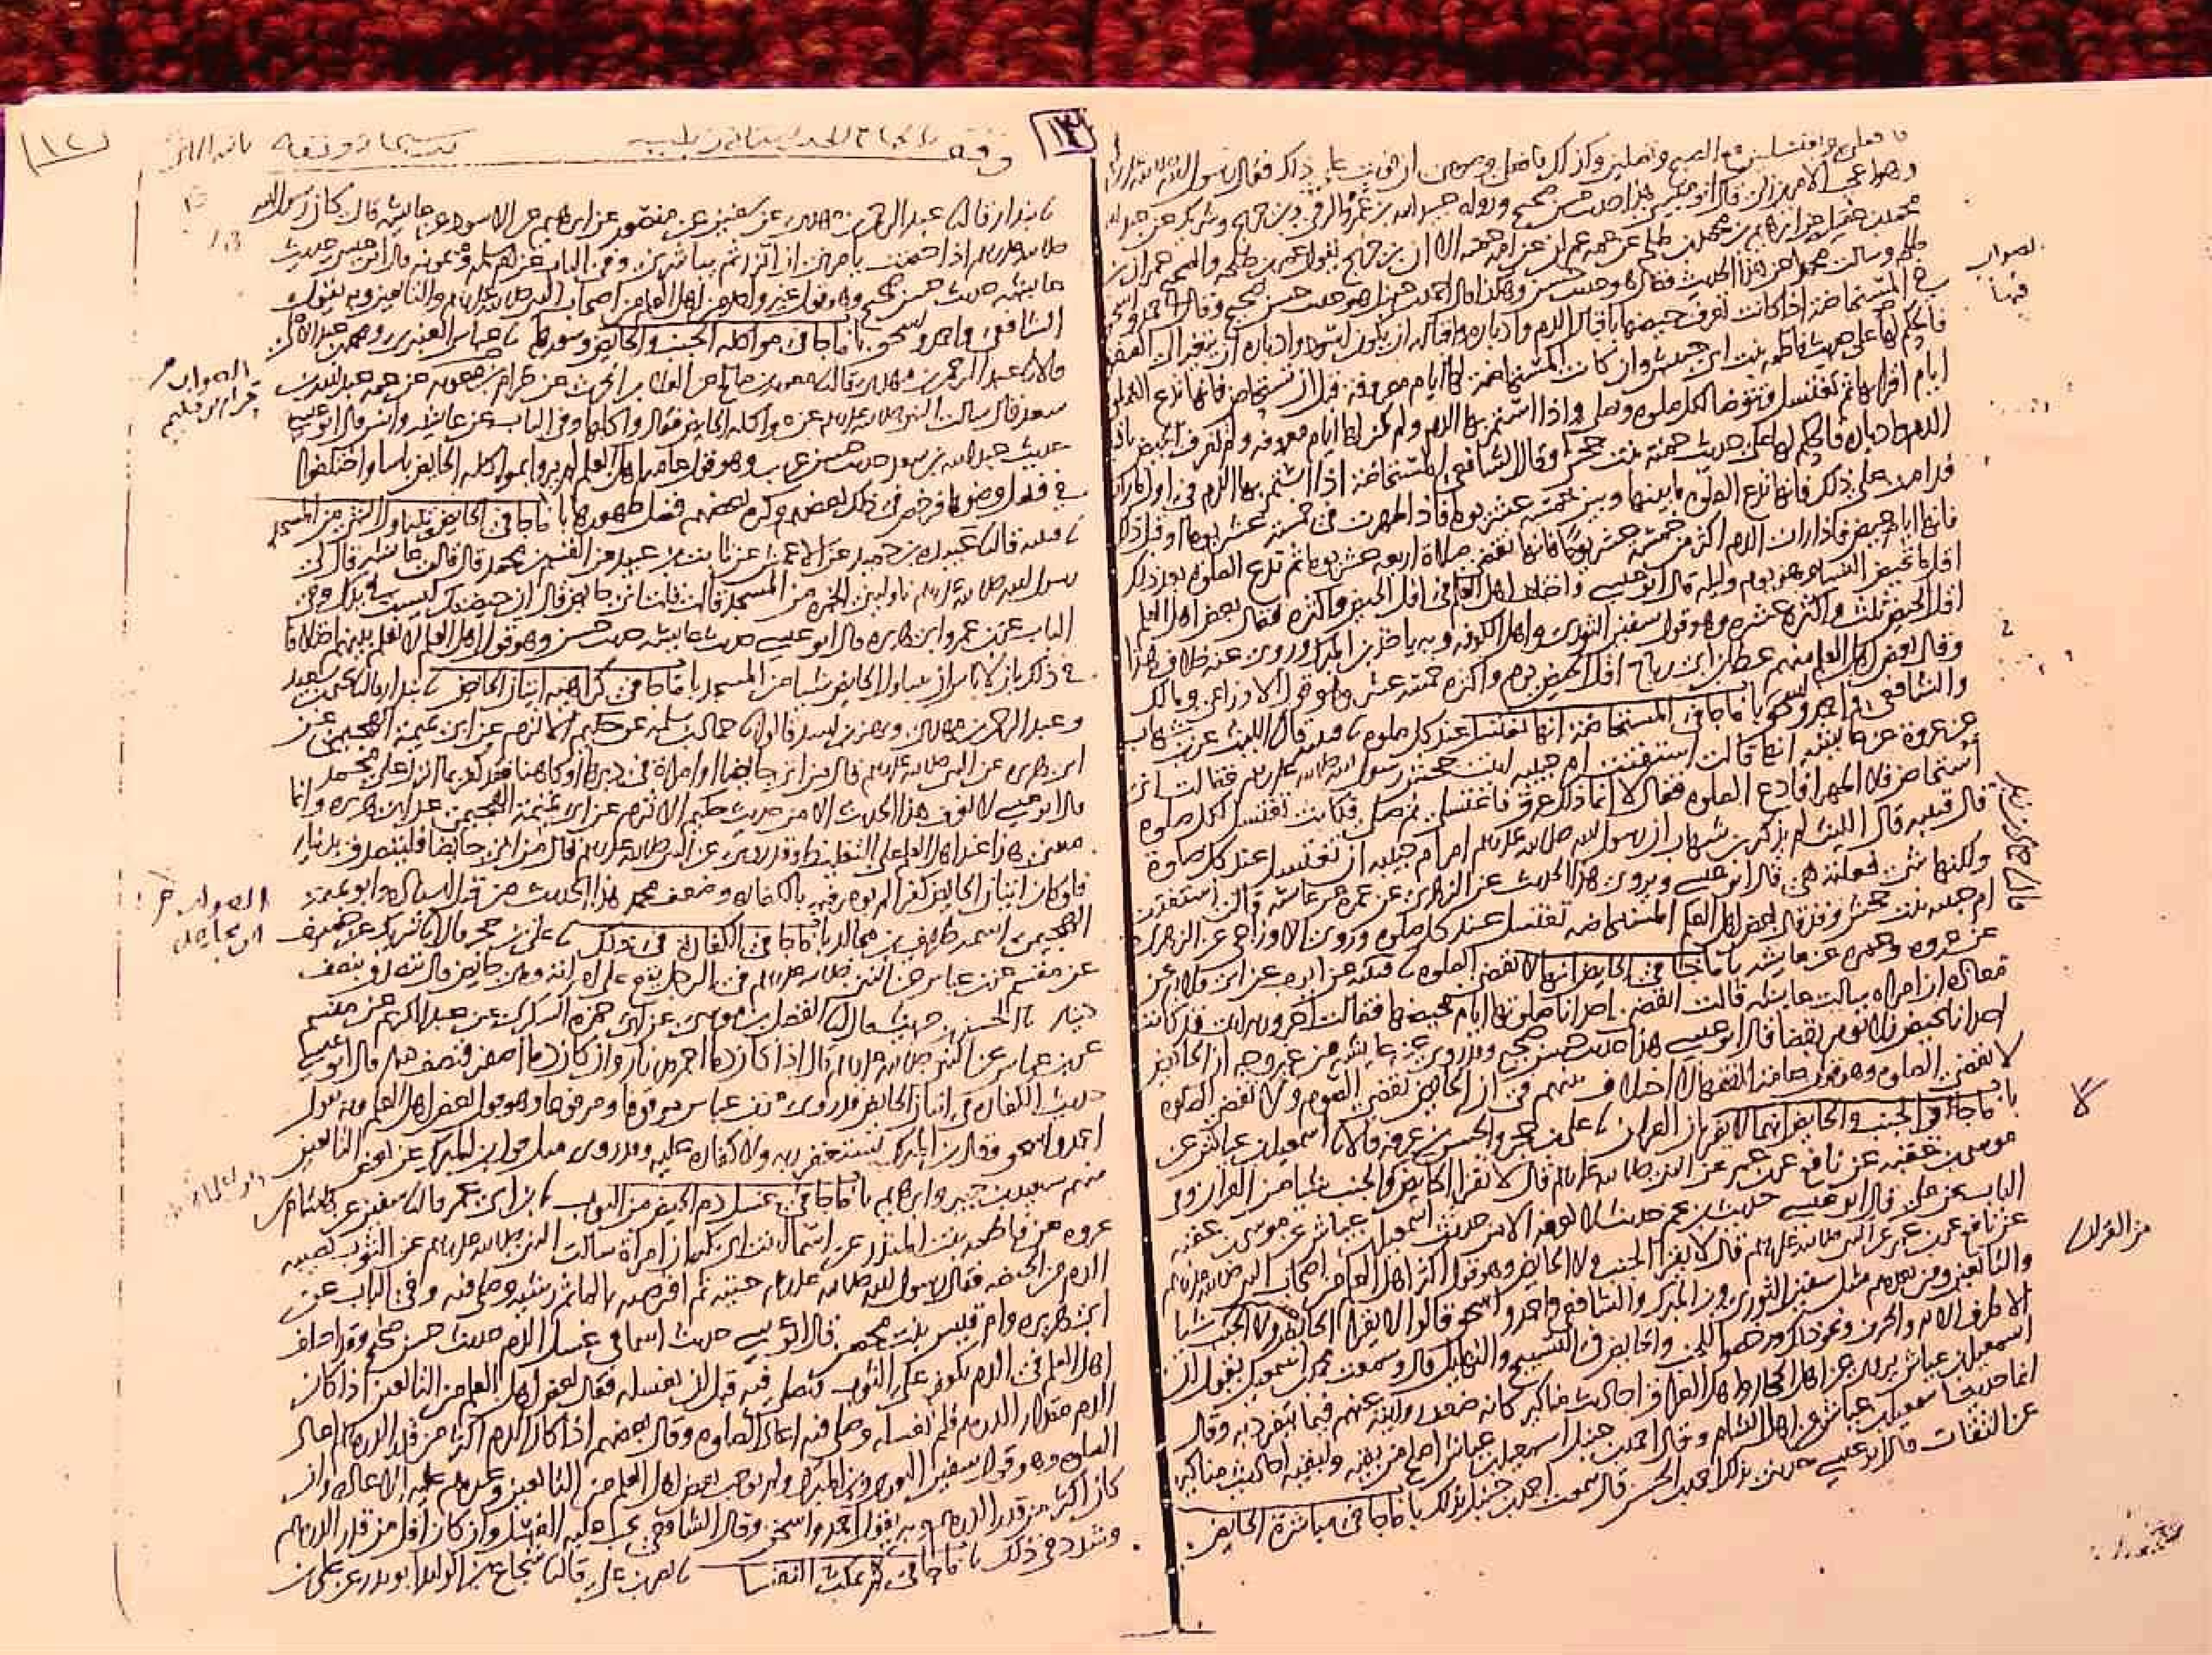 فافعلي وتغتسلين مع الصبح وتصلين وكذلك فافعلي وصومي ان قويت على ذلك فقال رسول الله
وهو اعجب الامرين الي قال ابو عيسى هذا حديث حسن صحيح ورواه عبيد الله بن عمرو الرقي وبن جريج وشريك عن عبد الله
محمد بن عقيل عن ابراهيم بن محمد بن طلحة عن عمه عمران عن امه حمنة الا ان بن جريج يقول عمر بن طلحة والصحيح عمران بن
طلحة وسالت محمدا عن هذا الحديث فقال هو حديث حسن وهكذا قال احمد بن حنبل هو حديث حسن صحيح وقال احمد واسحق
في المستحاضة اذا كانت تعرف حيضها باقبال الدم وادباره واقباله ان يكون اسود وادباره ان يتغير الى الصفرة
فالحكم لها على حديث فاطمة بنت ابي حبيش وان كانت المستحاضة لها ايام معروفة قبل ان تستحاض فانها تدع الصلوة
ايام اقرائها ثم تغتسل وتتوضا لكل صلوة وتصلي واذا استمر بها الدم ولم يكن لها ايام معروفة ولم تعرف الحيض باقبال
الدم وادباره فالحكم لها على حديث حمنة بنت جحش وقال الشافعي المستحاضة اذا استمر بها الدم في اول ما رات
فدامت على ذلك فانها تدع الصلوة ما بينها وبين خمسة عشر يوما فاذا طهرت في خمسة عشر يوما او قبل ذلك
فانها ايام حيض فاذا رات الدم اكثر من خمسة عشر يوما فانها تقضي صلاة اربعة عشر يوما ثم تدع الصلوة بعد ذلك
اقل ما تحيض النساء وهو يوم وليلة قال ابو عيسى واختلف اهل العلم في اقل الحيض واكثره فقال بعض اهل العلم
اقل الحيض ثلث واكثره عشرة وهو قول سفين الثوري واهل الكوفة وبه ياخذ بن المبرك وروي عنه خلاف هذا
وقال بعض اهل العلم منهم عطا بن ابي رباح اقل الحيض يوم واكثره خمسة عشر وهو قول الاوزاعي ومالك
والشافعي واحمد واسحق باب ما جا في المستحاضة انها تغتسل عند كل صلوة نا قتيبة قال نا الليث عن بن شهاب
عن عروة عن عايشة انها قالت استفتت ام حبيبة ابنت جحش رسول الله صلى الله عليه وسلم فقالت اني
استحاض فلا اطهر افادع الصلوة فقال لا انما ذلك عرق فاغتسلي ثم صلي فكانت تغتسل لكل صلوة
قال قتيبة قال الليث لم يذكر بن شهاب ان رسول الله صلى الله عليه وسلم امر ام حبيبة ان تغتسل عند كل صلوة
ولكنها شي فعلته هي قال ابو عيسى ويروى هذا الحديث عن الزهري عن عمرة عن عايشة قالت استفتت
ام حبيبة بنت جحش وقد قال بعض اهل العلم المستحاضة تغتسل عند كل صلوة وروى الاوزاعي عن الزهري
عن عروة وعمرة عن عايشة باب ما جا في الحايض انها لا تقضي الصلوة نا قتيبة عن ايوب عن ابي قلابة عن
معاذة ان امراة سالت عايشة قالت اتقضي احدانا صلوتها ايام محيضها فقالت احرورية انت قد كانت
احدانا تحيض فلا تومر بقضا قال ابو عيسى هذا حديث حسن صحيح وقد روي عن عايشة من غير وجه ان الحايض
لا تقضي الصلوة وهو قول عامة الفقها لا اختلاف بينهم في ان الحايض تقضي الصوم ولا تقضي الصلوة
باب ما جا في الجنب والحايض انهما لا يقران القران نا علي بن حجر والحسن بن عرفة قالا نا اسمعيل بن عياش عن
موسى بن عقبة عن نافع عن بن عمر عن النبي صلى الله عليه وسلم قال لا تقرا الحايض ولا الجنب شيا من القران وفي
الباب عن علي قال ابو عيسى حديث بن عمر حديث لا نعرفه الا من حديث اسمعيل بن عياش عن موسى بن عقبة
عن نافع عن بن عمر عن النبي صلى الله عليه وسلم قال لا يقرا الجنب ولا الحايض وهو قول اكثر اهل العلم من اصحاب النبي صلى الله عليه وسلم
والتابعين ومن بعدهم مثل سفين الثوري وبن المبرك والشافعي واحمد واسحق قالوا لا يقرا الحايض ولا الجنب شيا
الا طرف الاية والحرف ونحو ذلك ورخصوا للجنب والحايض في التسبيح والتهليل قال وسمعت محمد بن اسمعيل يقول ان
اسمعيل بن عياش يروي عن اهل الحجاز واهل العراق احاديث مناكير كانه ضعف روايته عنهم فيما يتفرد به وقال
انما حديث اسمعيل بن عياش عن اهل الشام وقال احمد بن حنبل اسمعيل بن عياش اصلح من بقية ولبقية احاديث مناكير
عن الثقات قال ابو عيسى حدثني بذلك احمد بن الحسن قال سمعت احمد بن حنبل بذلك باب ما جا في مباشرة الحايض
الصواب
فيهما
لا
من القران
١٣
١٢
نا بندار قال نا عبد الرحمن بن مهدي عن سفين عن منصور عن ابراهيم عن الاسود عن عايشة قالت كان رسول الله
صلى الله عليه وسلم اذا حضت يامرني ان اتزر ثم يباشرني وفي الباب عن ام سلمة وميمونة قال ابو عيسى حديث
عايشة حديث حسن صحيح وهو قول غير واحد من اهل العلم من اصحاب النبي صلى الله عليه وسلم والتابعين وبه يقول
الشافعي واحمد واسحق باب ما جا في مواكلة الجنب والحايض وسورهما نا عباس العنبري ومحمد بن عبد الاعلى
قالا نا عبد الرحمن بن مهدي قال نا معوية بن صالح عن العلا بن الحرث عن حرام بن معوية عن عمه عبد الله بن
سعد قال سالت النبي صلى الله عليه وسلم عن مواكلة الحايض فقال واكلها وفي الباب عن عايشة وانس قال ابو عيسى
حديث عبد الله بن سعد حديث حسن غريب وهو قول عامة اهل العلم لم يروا بمواكلة الحايض باسا واختلفوا
في فضل وضوها فرخص في ذلك بعضهم وكره بعضهم فضل طهورها باب ما جا في الحايض تتناول الشي من المسجد
نا قتيبة قال نا عبيدة بن حميد عن الاعمش عن ثابت بن عبيد عن القسم بن محمد قال قالت عايشة قال لي
رسول الله صلى الله عليه وسلم ناوليني الخمرة من المسجد قالت قلت اني حايض قال ان حيضتك ليست في يدك وفي
الباب عن بن عمر وابي هريرة قال ابو عيسى حديث عايشة حديث حسن وهو قول اهل العلم لا نعلم بينهم اختلافا
في ذلك بان لا باس ان تتناول الحايض شيا من المسجد باب ما جا في كراهية اتيان الحايض نا بندار قال نا يحيى بن سعيد
وعبد الرحمن بن مهدي وبهز بن اسد قالوا نا حماد بن سلمة عن حكيم الاثرم عن ابي تميمة الهجيمي عن
ابي هريرة عن النبي صلى الله عليه وسلم قال من اتى حايضا او امراة في دبرها او كاهنا فقد كفر بما انزل على محمد
قال ابو عيسى لا نعرف هذا الحديث الا من حديث حكيم الاثرم عن ابي تميمة الهجيمي عن ابي هريرة وانما
معنى هذا عند اهل العلم على التغليظ وقد روي عن النبي صلى الله عليه وسلم قال من اتى حايضا فليتصدق بدينار
فلو كان اتيان الحايض كفرا لم يومر فيه بالكفارة وضعف محمد هذا الحديث من قبل اسناده وابو تميمة
الهجيمي اسمه طريف بن مجالد باب ما جا في الكفارة في ذلك نا علي بن حجر قال نا شريك عن خصيف
عن مقسم عن بن عباس عن النبي صلى الله عليه وسلم في الرجل يقع على امراته وهي حايض قال يتصدق بنصف
دينار نا الحسين بن حريث قال نا الفضل بن موسى عن ابي حمزة السكري عن عبد الكريم عن مقسم
عن بن عباس عن النبي صلى الله عليه وسلم قال اذا كان دما احمر فدينار وان كان دما اصفر فنصف دينار قال ابو عيسى
حديث الكفارة في اتيان الحايض قد روي عن بن عباس موقوفا ومرفوعا وهو قول بعض اهل العلم وبه يقول
احمد واسحق وقال بن المبرك يستغفر ربه ولا كفارة عليه وقد روي مثل قول بن المبرك عن بعض التابعين
منهم سعيد بن جبير وابراهيم باب ما جا في غسل دم الحيض من الثوب نا بن ابي عمر قال نا سفين عن هشام بن
عروة عن فاطمة بنت المنذر عن اسما بنت ابي بكر ان امراة سالت النبي صلى الله عليه وسلم عن الثوب يصيبه
الدم من الحيضة فقال رسول الله صلى الله عليه وسلم حتيه ثم اقرصيه بالما ثم رشيه وصلي فيه وفي الباب عن
ابي هريرة وام قيس بنت محصن قال ابو عيسى حديث اسما في غسل الدم حديث حسن صحيح وقد اختلف
اهل العلم في الدم يكون على الثوب فيصلي فيه قبل ان يغسله فقال بعض اهل العلم من التابعين اذا كان
الدم مقدار الدرهم فلم يغسله وصلى فيه اعاد الصلوة وقال بعضهم اذا كان الدم اكثر من قدر الدرهم اعاد
الصلوة وهو قول سفين الثوري وبن المبرك ولم يوجب بعض اهل العلم من التابعين وغيرهم عليه الاعادة وان
كان اكثر من قدر الدرهم وبه يقول احمد واسحق وقال الشافعي يجب عليه الغسل وان كان اقل من قدر الدرهم
وشدد في ذلك باب ما جا في كم تمكث النفسا نا نصر بن علي قال نا شجاع بن الوليد ابو بدر عن علي بن
الصواب
حرام بن حكيم
الصواب